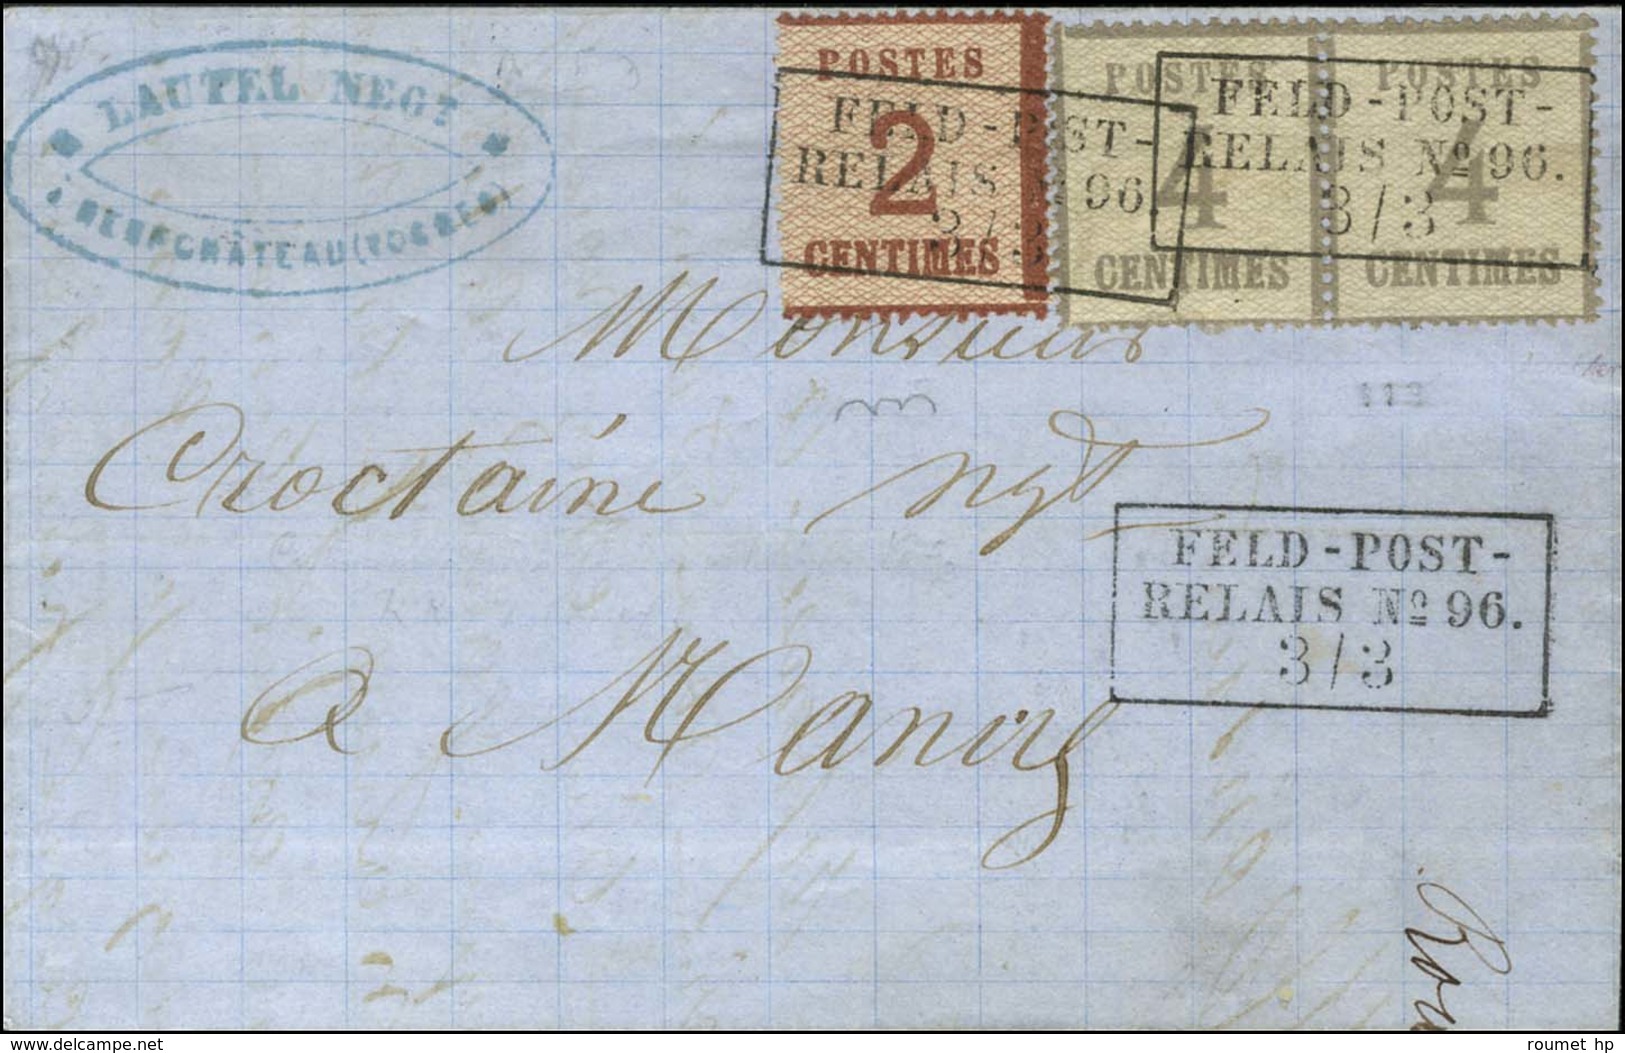 LAUTEL NEGT
À NEUFCHÂTEAU (VOSGES)
POSTES
2
CENTIMES
POSTES
4
CENTIMES
POSTES
4
CENTIMES
FELD-POST-
RELAIS No 96.
3/3
FELD-POST-
RELAIS No 96.
3/3
Monsieur
113
Croctaine ngt
FELD-POST-
RELAIS No 96.
3/3
à Nancy
delcampe.net
roumet hp